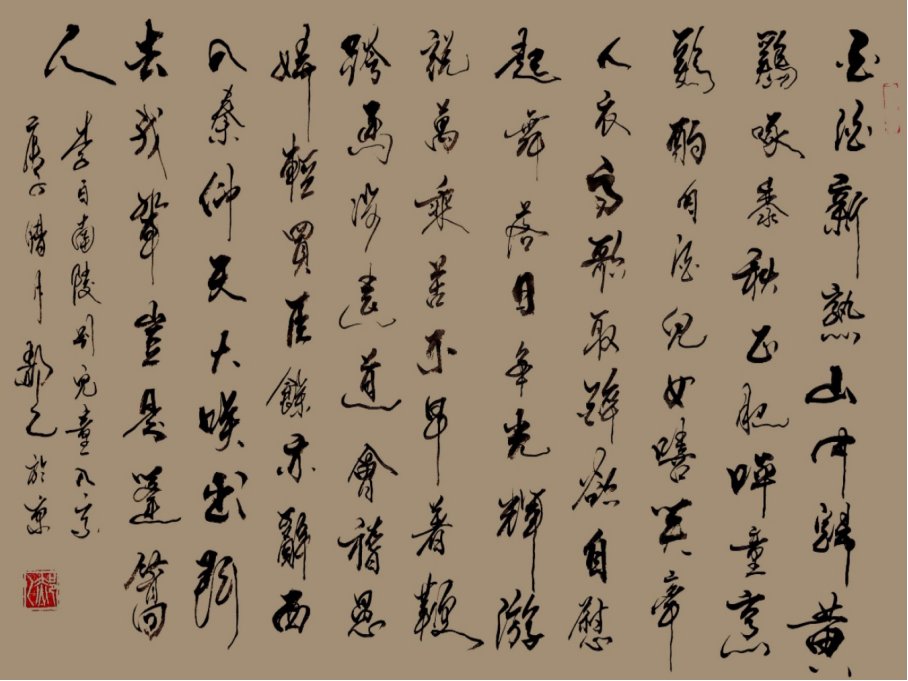 白酒新熟山中歸黃
鷄啄黍秋正肥呼童烹
鷄酌白酒兒女嘻笑牽
人衣高歌取醉欲自慰
起舞落日爭光輝游
說萬乘苦不早著鞭
跨馬涉遠道會稽愚
婦輕買臣餘亦辭西
入秦仰天大咲出門
去我輩豈是蓬蒿
人
李白南陵别兒童入京
臘月 於京